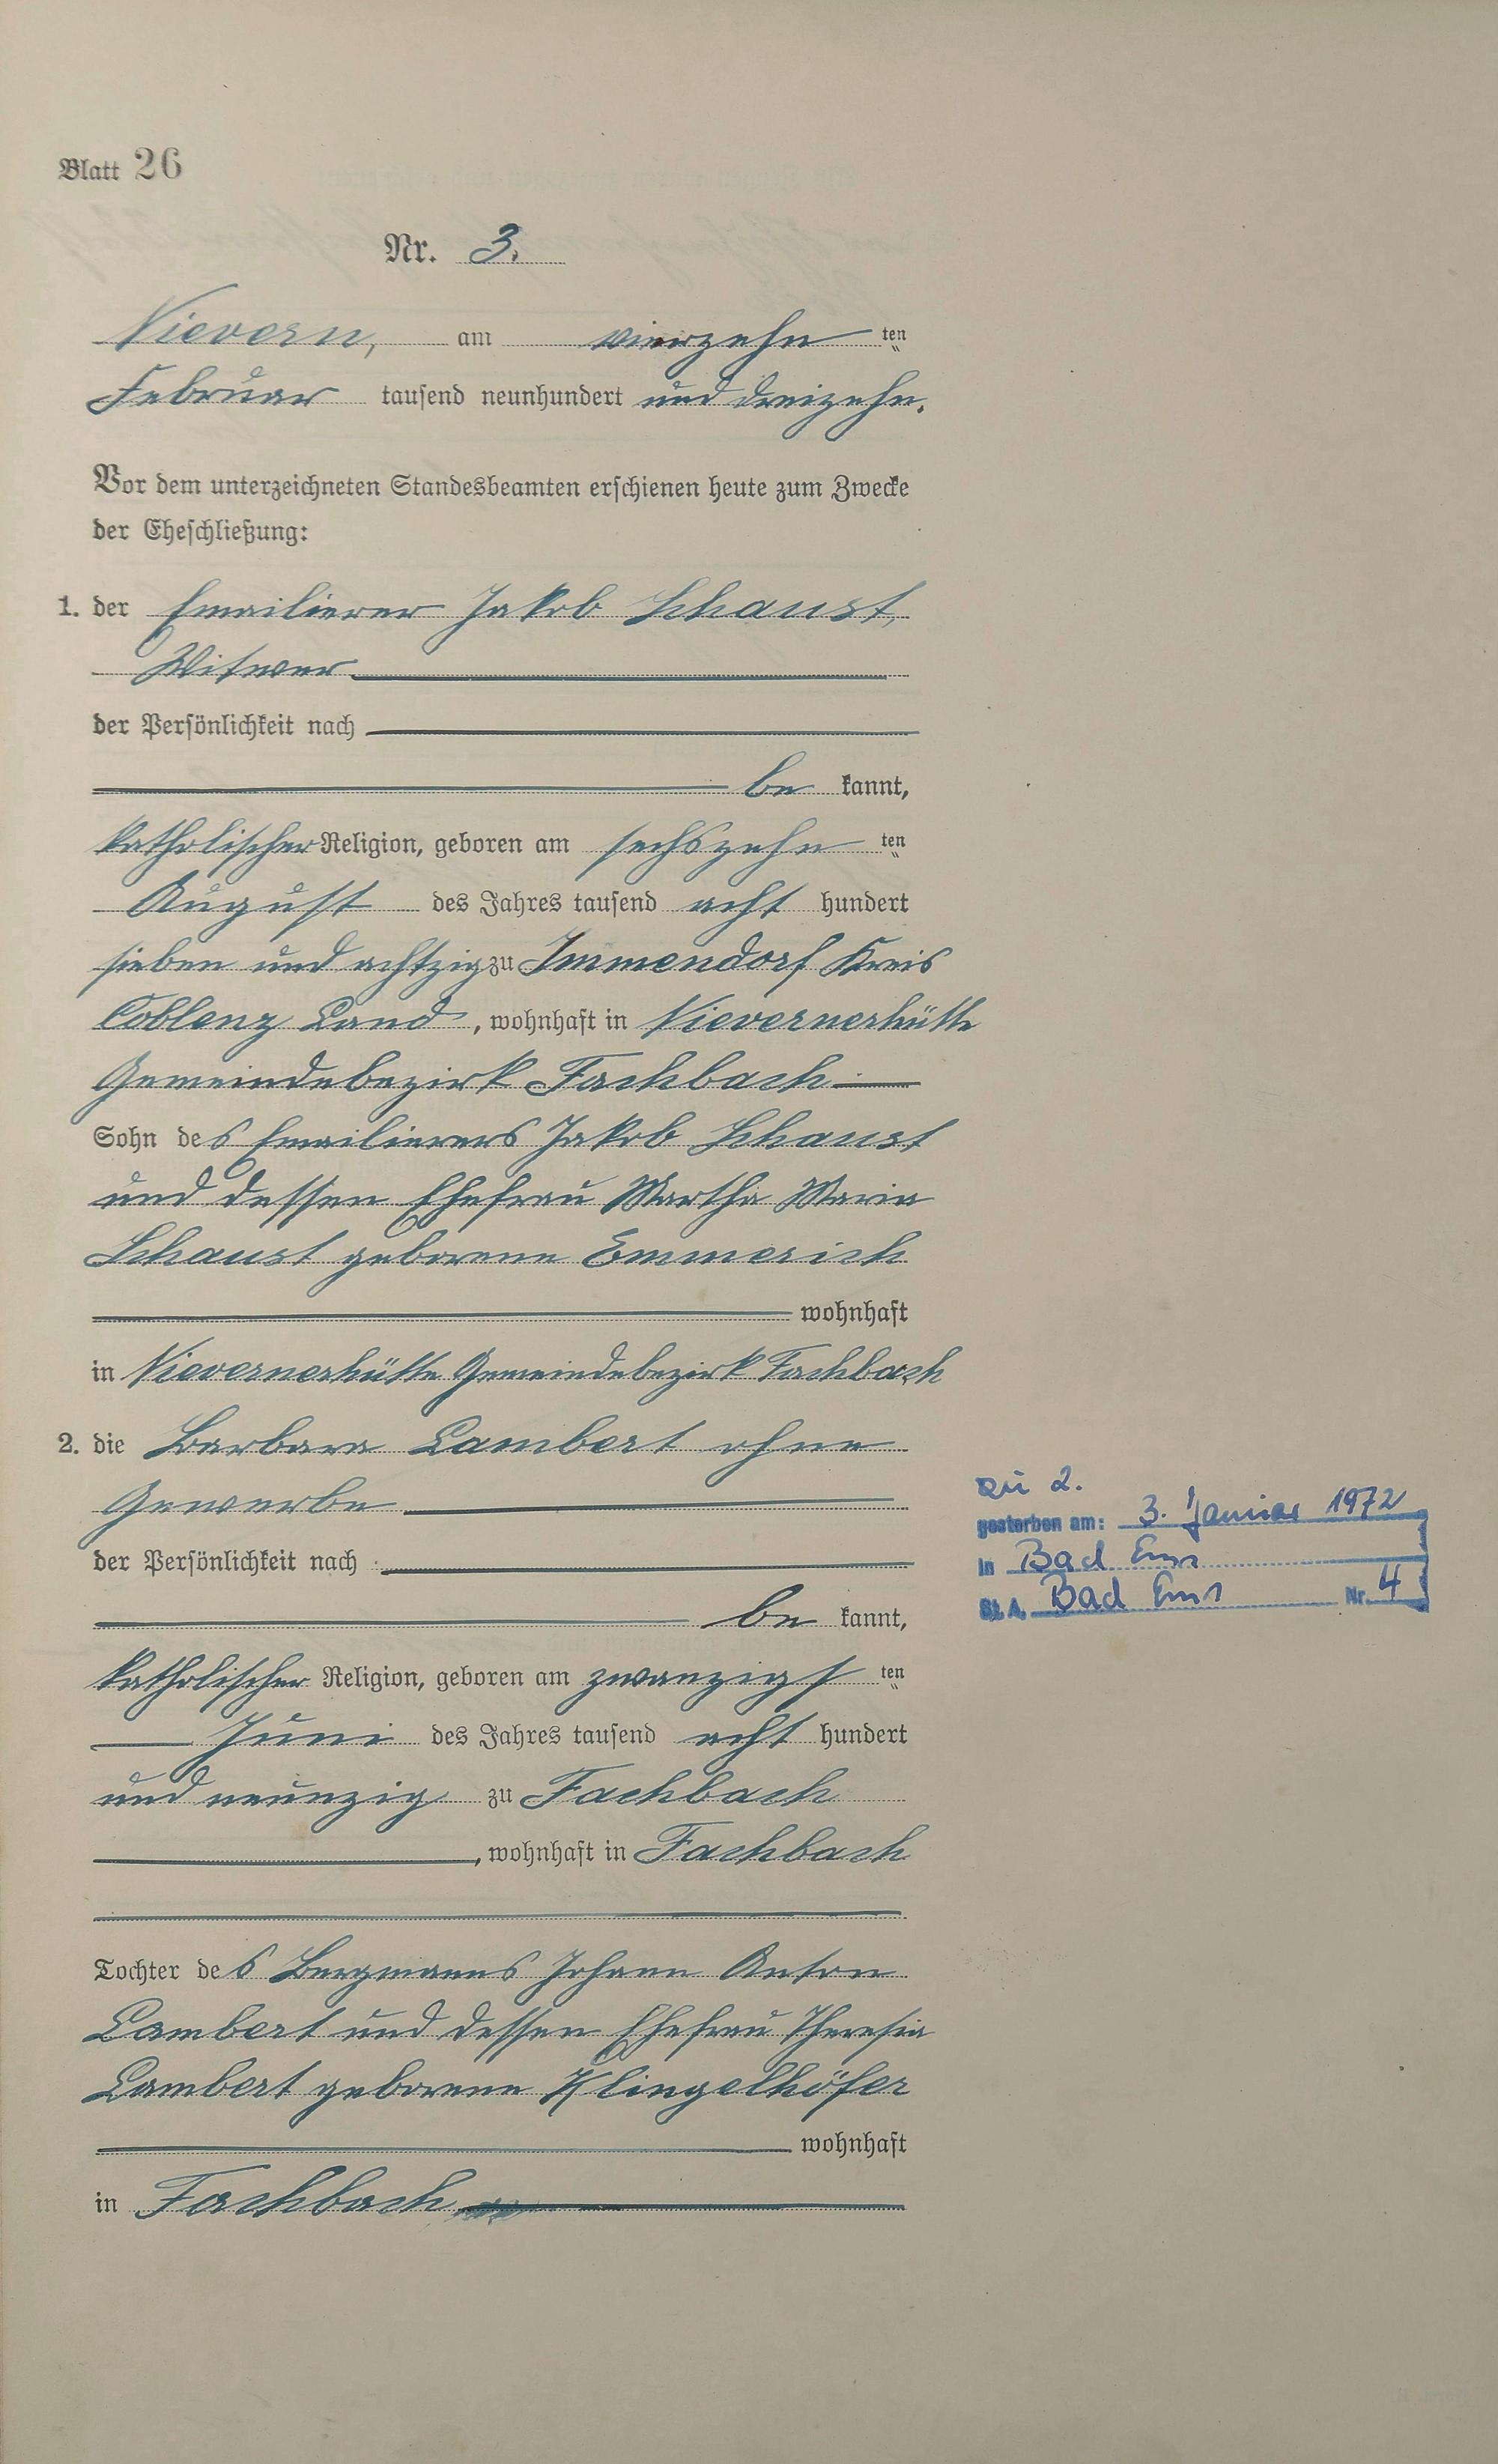 Blatt 26
Nr. 3.
Nievern, am vierzehn ten
Februar tausend neunhundert und dreizehn.
Vor dem unterzeichneten Standesbeamten erschienen heute zum Zwecke
der Eheschließung:
1. der Emailierer Jakob Schaust,
Witwer
der Persönlichkeit nach
be kannt,
katholischer Religion, geboren am sechszehn ten
August des Jahres tausend acht hundert
sieben und achtzig zu Immendorf Kreis
Coblenz Land, wohnhaft in Nievernerhütte
Gemeindebezirk Fachbach
Sohn des Emailierers Jakob Schaust
und dessen Ehefrau Martha Maria
Schaust geborene Emmerich
wohnhaft
in Nievernerhütte Gemeindebezirk Fachbach
2. die Barbara Lambert ohne
Gewerbe
der Persönlichkeit nach
be kannt,
katholischer Religion, geboren am zwanzigst ten
Juni des Jahres tausend acht hundert
und neunzig zu Fachbach
, wohnhaft in Fachbach
Tochter des Bergmanns Johann Anton
Lambert und dessen Ehefrau Theresia
Lambert geborene Klingelhöfer
wohnhaft
in Fachbach
zu 2.
gestorben am: 3. Januar 1972
in Bad Ems
St. A. Bad Ems Nr. 4